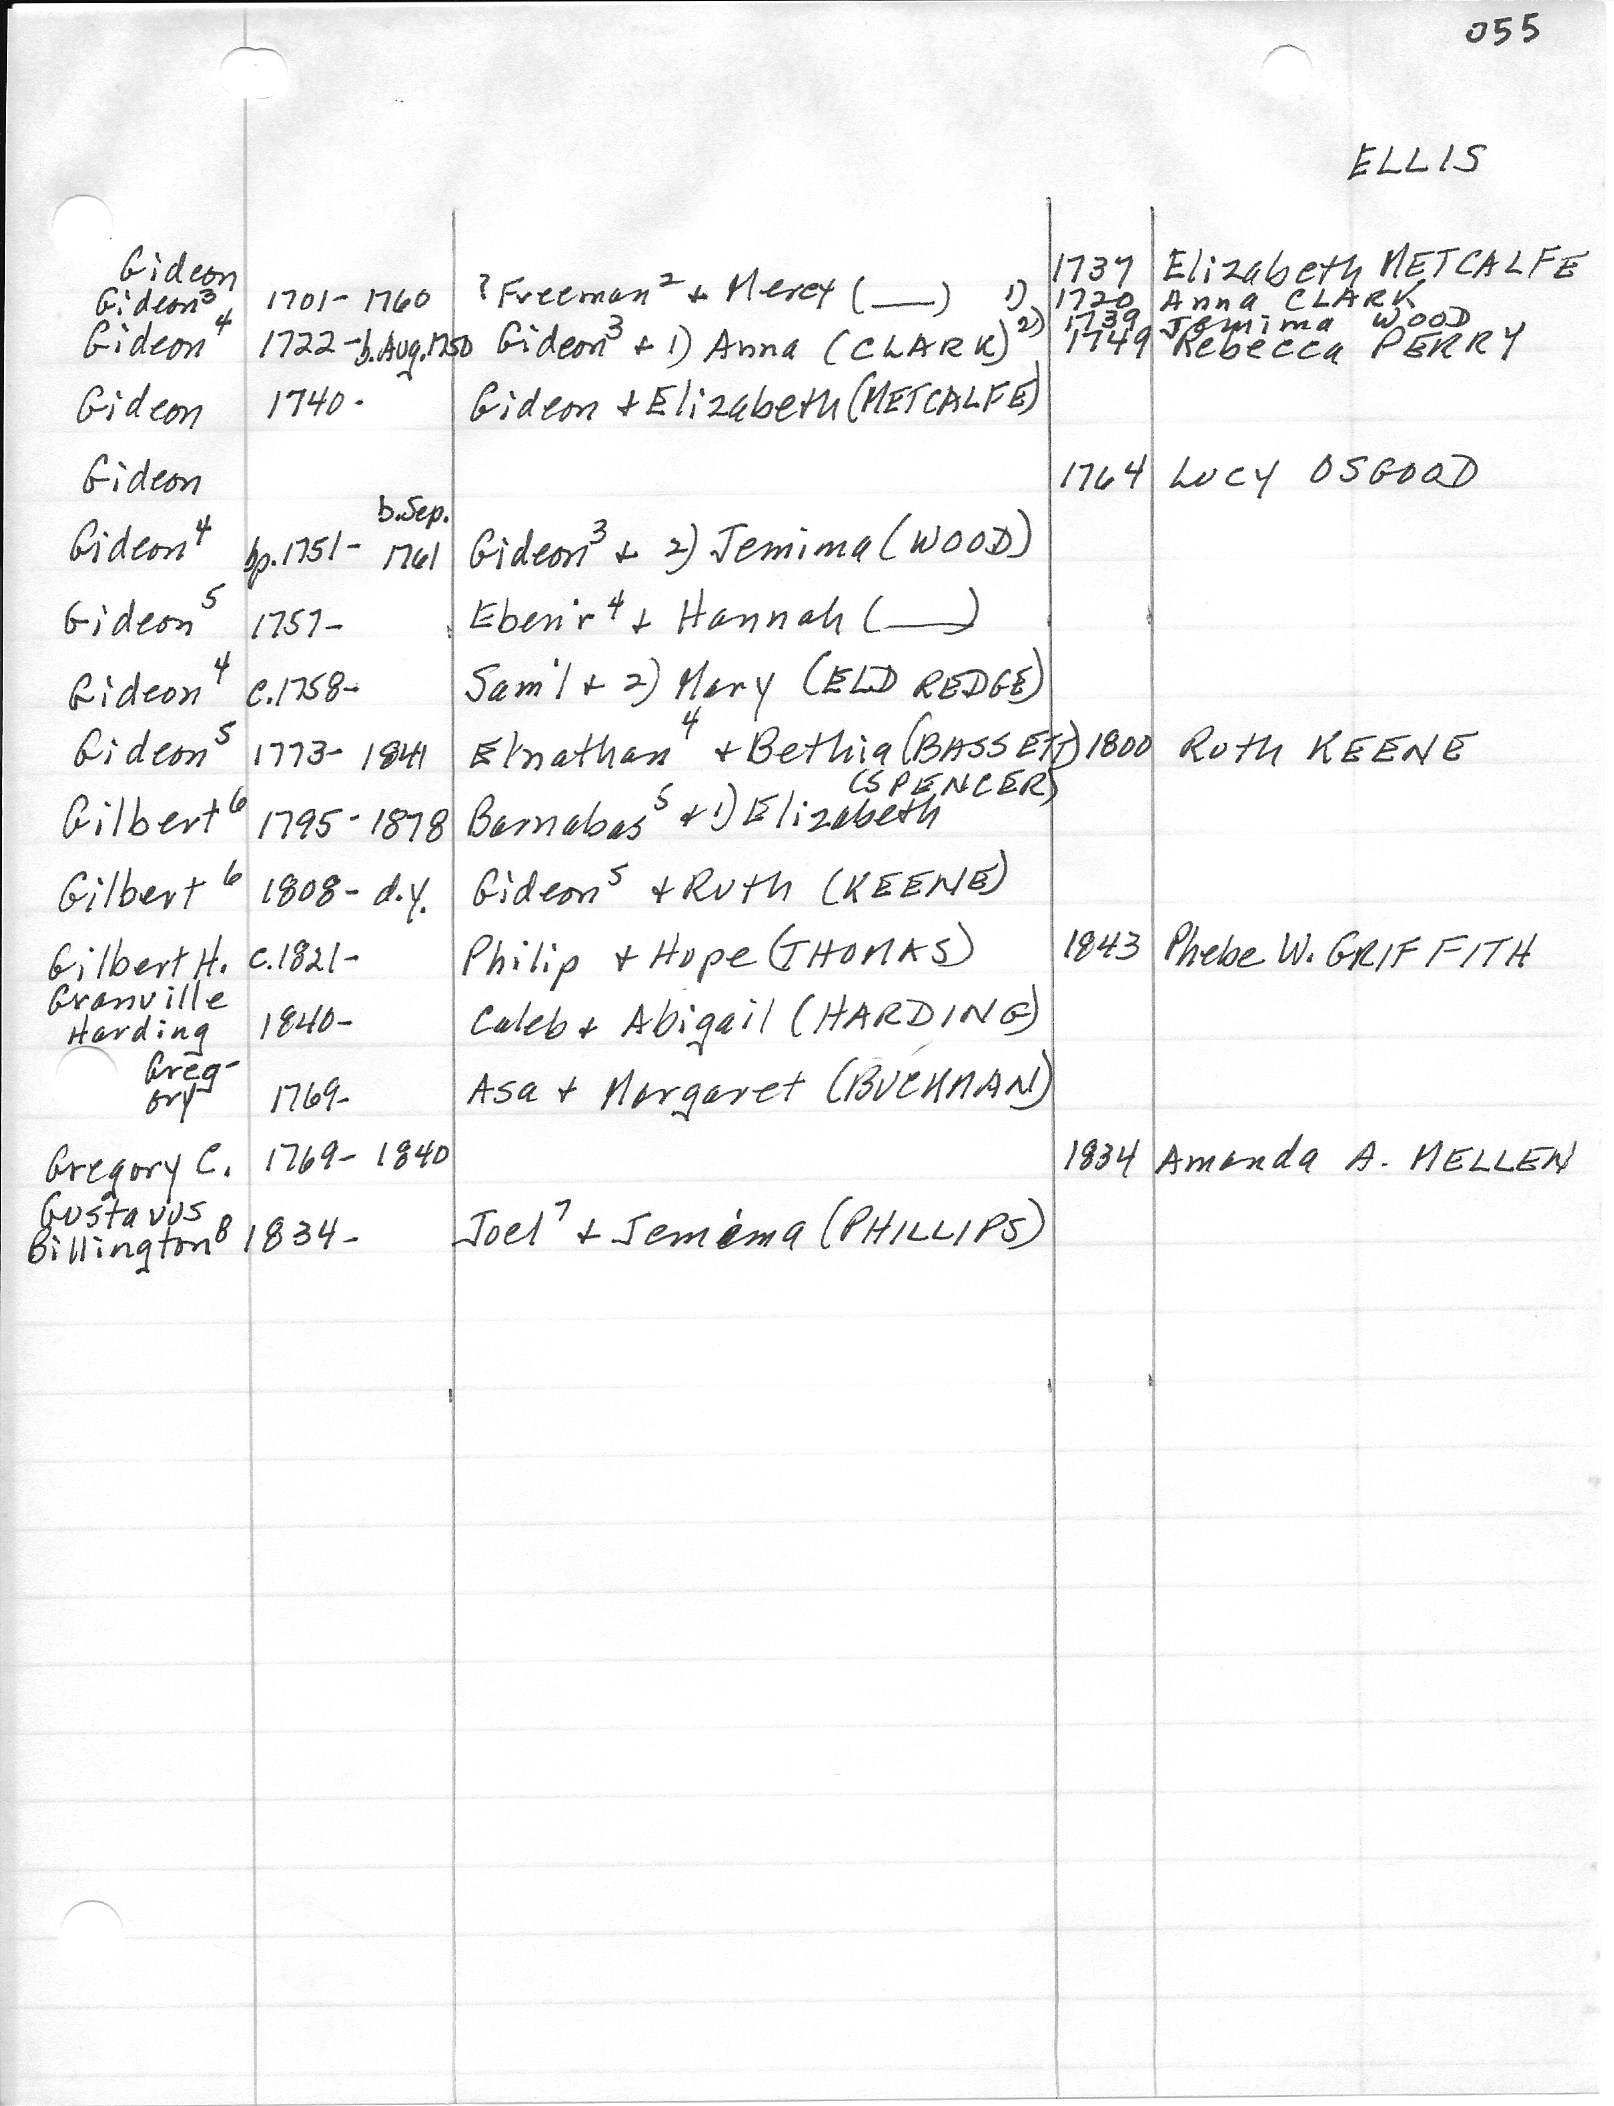 055
ELLIS
Gideon 1737 Elizabeth METCALFE
Gideon³ 1701- 1760 ?Freeman² + Mercy (___) 1) 1720 Anna CLARK
2) 1739 Jemima WOOD
Gideon⁴ 1722-b.Aug.1750 Gideon³ + 1) Anna (CLARK) 1749 Rebecca PERRY
Gideon 1740- Gideon + Elizabeth (METCALFE)
Gideon 1764 Lucy OSGOOD
b.Sep.
Gideon⁴ bp.1751- 1761 Gideon³ + 2) Jemima (WOOD)
Gideon⁵ 1757- Eben'r⁴ + Hannah (___)
Gideon⁴ c.1758- Sam'l + 2) Mary (ELDREDGE)
Gideon⁵ 1773- 1841 Elnathan⁴ + Bethia (BASSETT) 1800 Ruth KEENE
(SPENCER)
Gilbert⁶ 1795- 1878 Barnabas⁵ + 1) Elizabeth
Gilbert⁶ 1808- d.y. Gideon⁵ + Ruth (KEENE)
Gilbert H. c.1821- Philip + Hope (THOMAS) 1843 Phebe W. GRIFFITH
Granville
Harding 1840- Caleb + Abigail (HARDING)
Greg-
ory 1769- Asa + Margaret (BUCKMAN)
Gregory C. 1769- 1840 1834 Amanda A. MELLEN
Gustavus
Billington⁸ 1834- Joel⁷ + Jemima (PHILLIPS)